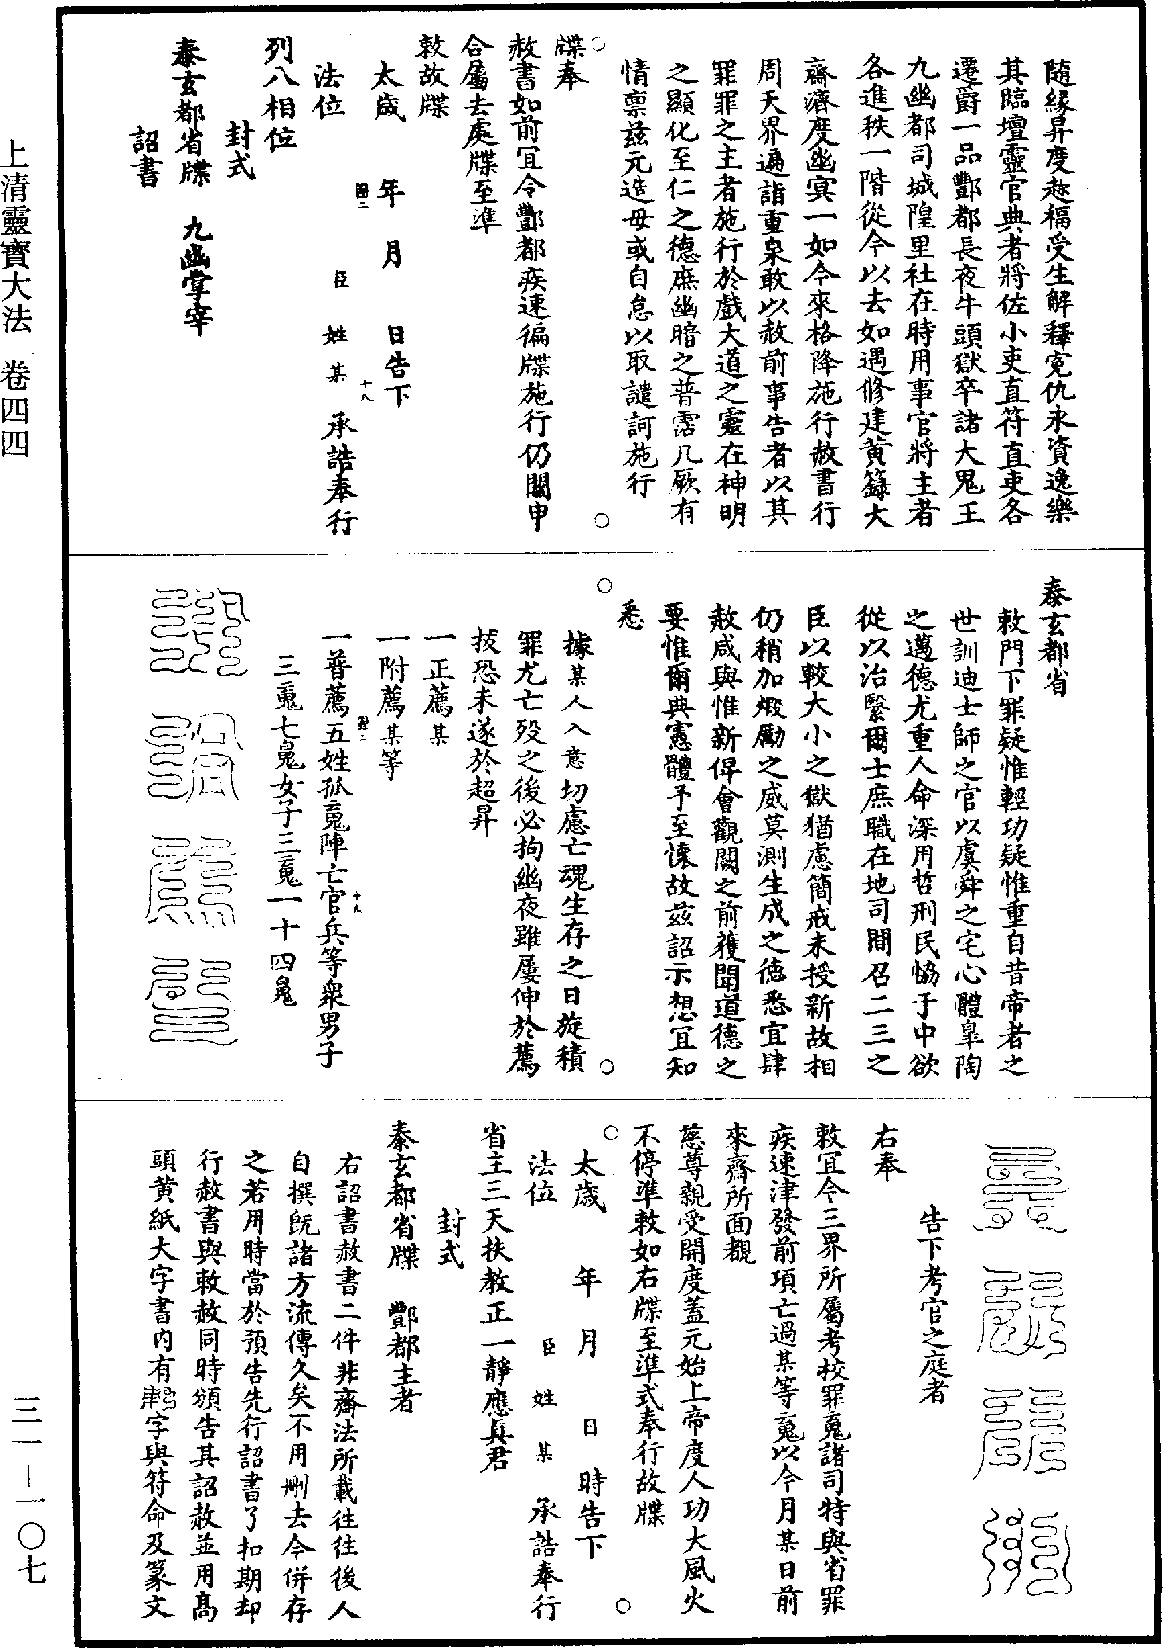 隨緣昇度趂福受生解釋寃仇永資逸樂
其臨壇靈官典者將佐小吏直符直吏各
遷爵一品酆都長夜牛頭獄卒諸大鬼王
九幽都司城隍里社在時用事官將主者
各進秩一階從今以去如遇修建黃籙大
齋濟度幽冥一如今來格降施行赦書行
周天界遍詣重泉敢以赦前事告者以其
罪罪之主者施行於戲大道之靈在神明
之顯化至仁之德庶幽暗之普霑凡厥有
情禀玆元造毋或自怠以取譴訶施行
牒奉
赦書如前宜令酆都疾速徧牒施行仍關申
合屬去處牒至準
敕故牒
太歲 年 月 日告下
法位 臣 姓 某 承誥奉行
列八相位
封式
泰玄都省牒 九幽掌宰
詔書
泰玄都省
敕門下罪疑惟輕功疑惟重自昔帝者之
世訓迪士師之官以虞舜之宅心體臯陶
之邁德尤重人命深用哲刑民恊于中欲
從以治緊爾士庶職在地司間召二三之
臣以較大小之獄猶慮簡戒未授新故相
仍稍加煅勵之威莫測生成之德悉宜肆
赦咸與惟新俾會觀闕之前獲聞道德之
要惟爾典憲體予至懷故玆詔示想宜知
悉
據某人入意切慮亡魂生存之日旋積
罪尤亡殁之後必拘幽夜雖屢伸於薦
拔恐未遂於超昇
一正薦某
一附薦某等
一普薦五姓孤䰟陣亡官兵等衆男子
三䰟七䰠女子三䰟一十四䰠
右奉
告下考官之庭者
敕宜令三界所屬考校罪䰟諸司特與省罪
疾速津發前項亡過某等䰟以今月某日前
來齋所面覩
慈尊親受開度蓋元始上帝度人功大風火
不停準敕如右牒至準式奉行故牒
太歲 年 月 日 時告下
法位 臣 姓 某 承誥奉行
省主三天扶教正一靜應真君
封式
泰玄都省牒 酆都主者
右詔書赦書二件非齋法所載往往後人
自撰旣諸方流傳久矣不用刪去今併存
之若用時當於預告先行詔書了扣期却
行赦書與敕赦同時頒告其詔赦並用高
頭黃紙大字書內有字與符命及篆文
上清靈寶大法 卷四四
三一－一〇七